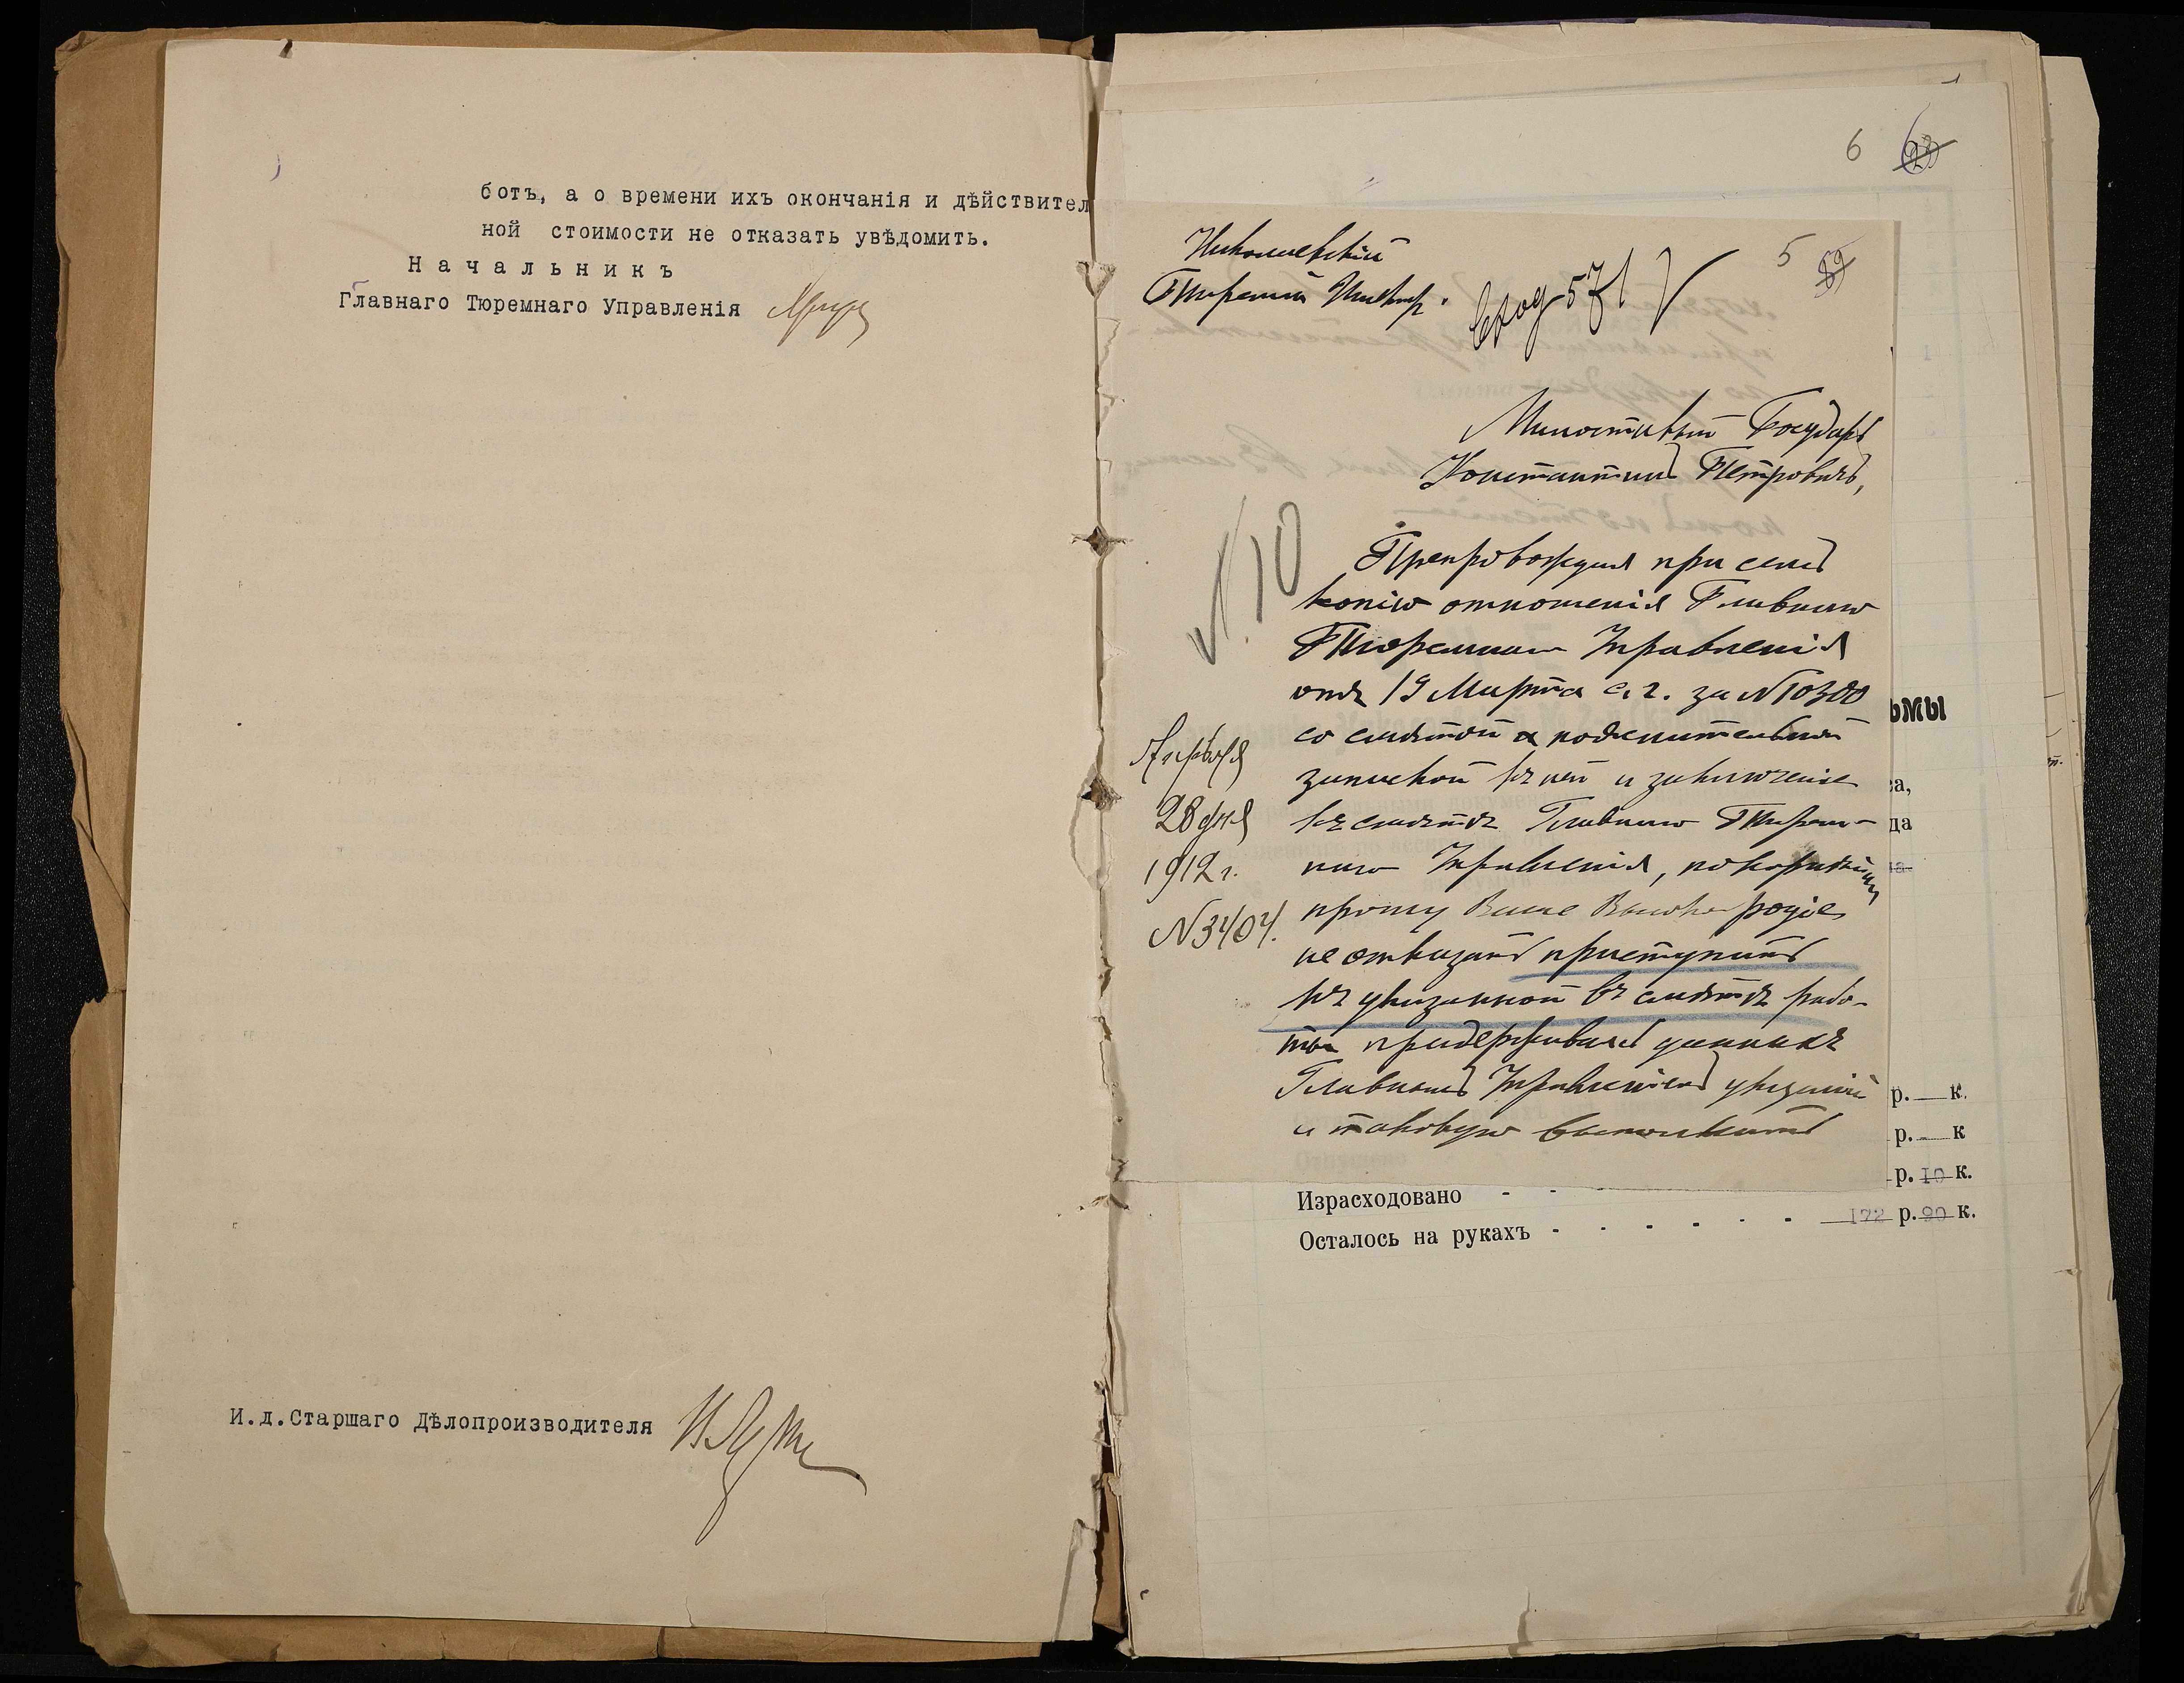 ботъ, а о времени ихъ окончанія и дѣйствител
ной стоимости не отказать увѣдомить.
Начальникъ
Главнаго Тюремнаго Управленія
И.д.Старшаго Дѣлопроизводителя
6
Николаевскій
Тюремный Инспр.
Вход 571
5 59
Милостивый Государь
Константинъ Петровичъ,
№ 10
Препровождая при семъ
копію отношенія Главнаго
Тюремнаго Управленія
отъ 19 Марта с. г. за № 10300
со смѣтой и пояснительной
запиской къ ней и заключеніе
къ смѣтѣ Главнаго Тюрем-
наго Управленія, покорнѣйше
прошу Ваше Высокородіе
не отказать приступить
къ указанной въ смѣтѣ рабо-
ты придерживаясь данныхъ
Главнымъ Управленіемъ указаній
и таковую выполнить
Апрѣля
28 дня
1912 г.
№ 3404.
ьмы
ва,
да
р. к.
р. к
р. 10 к.
Израсходовано - -
Осталось на рукахъ - - - - - - 172 р. 90 к.